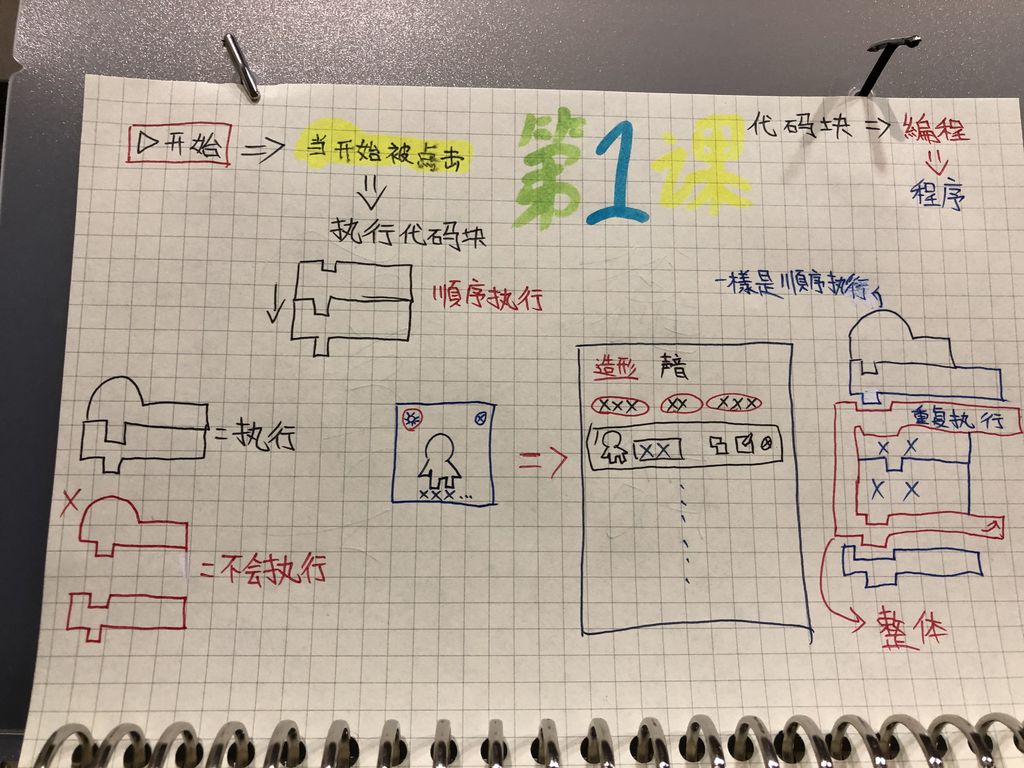 第1课
▷开始 => 当开始被点击
执行代码块
順序执行
代码块 => 编程
程序
一樣是順序执行
= 执行
X
= 不会执行
xxx...
=>
造形
xxx xx xxx
1 XX
重复执行
X X
X X
整体